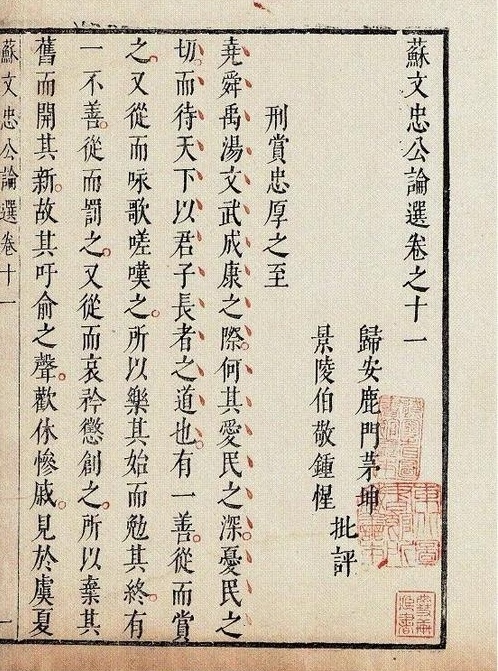 蘇文忠公論選卷之十一
歸安鹿門茅坤
景陵伯敬鍾惺
批評
刑賞忠厚之至
堯舜禹湯文武成康之際。何其愛民之深。憂民之
切。而待天下以君子長者之道也。有一善。從而賞
之。又從而咏歌嗟嘆之。所以樂其始而勉其終。有
一不善。從而罰之。又從而哀矜懲創之。所以棄其
舊而開其新。故其吁俞之聲。歡休慘戚。見於虞夏
蘇文忠公論選卷十一
一